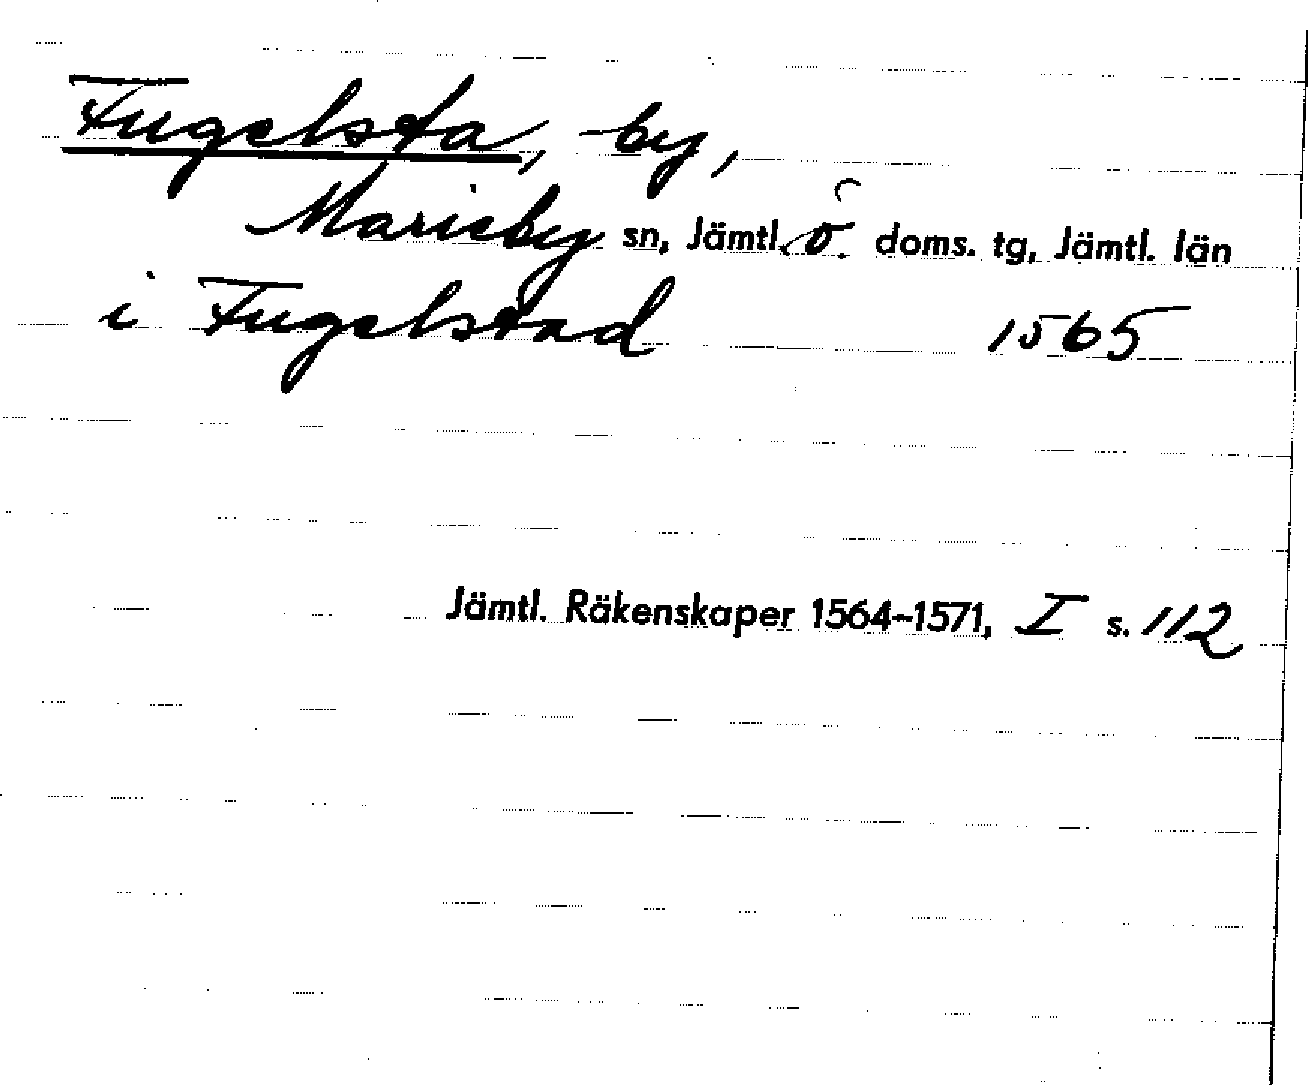 Fugelsta, by,
Marieby sn, Jämtl. ö. doms. tg, Jämtl. län
i Fugelstad 1565
Jämtl. Räkenskaper 1564-1571, I s. 112